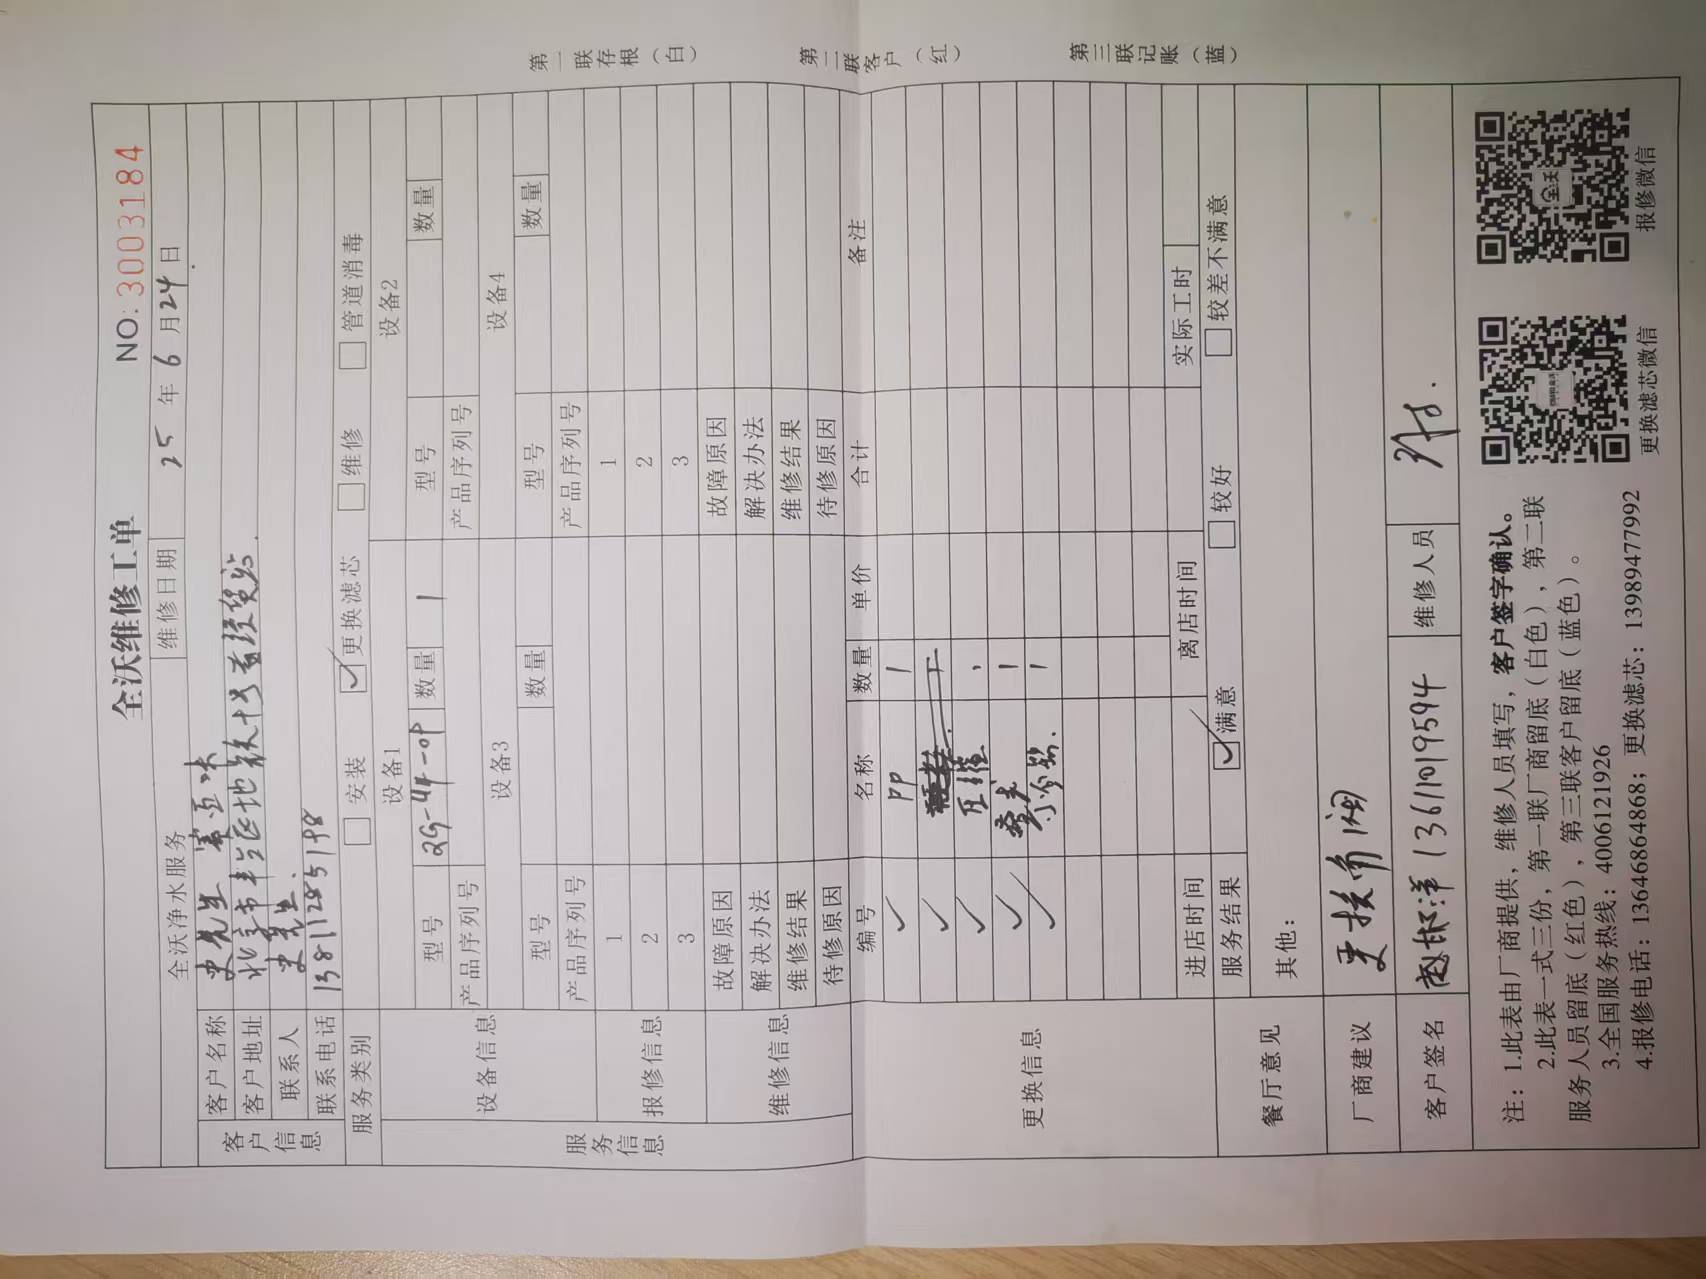 全沃维修工单
NO: 3003184
全沃净水服务 维修日期 25 年 6 月 24 日
客户信息
客户名称 史先生
客户地址 北京市丰台区地铁十号
联系人 史先生
联系电话 13811285198
服务类别 安装 更换滤芯 维修 管道消毒
服务信息
设备信息
设备1 设备2
型号 2G-4F-OP 数量 1 型号 数量
产品序列号 产品序列号
设备3 设备4
型号 数量 型号 数量
产品序列号 产品序列号
报修信息
1 1
2 2
3 3
维修信息
故障原因 故障原因
解决办法 解决办法
维修结果 维修结果
待修原因 待修原因
更换信息
编号 名称 数量 单价 合计 备注
✓ PP 1
✓
✓
✓ 1
✓ 1
进店时间 离店时间 实际工时
餐厅意见
服务结果 满意 较好 较差不满意
其他:
厂商建议 更换角阀
客户签名 13611019594 维修人员
注: 1.此表由厂商提供,维修人员填写,客户签字确认。
2.此表一式三份,第一联厂商留底(白色),第二联
服务人员留底(红色),第三联客户留底(蓝色)。
3.全国服务热线:4006121926
4.报修电话:13646864868; 更换滤芯:13989477992
更换滤芯微信
报修微信
第一联存根(白)
第二联客户(红)
第三联记账(蓝)